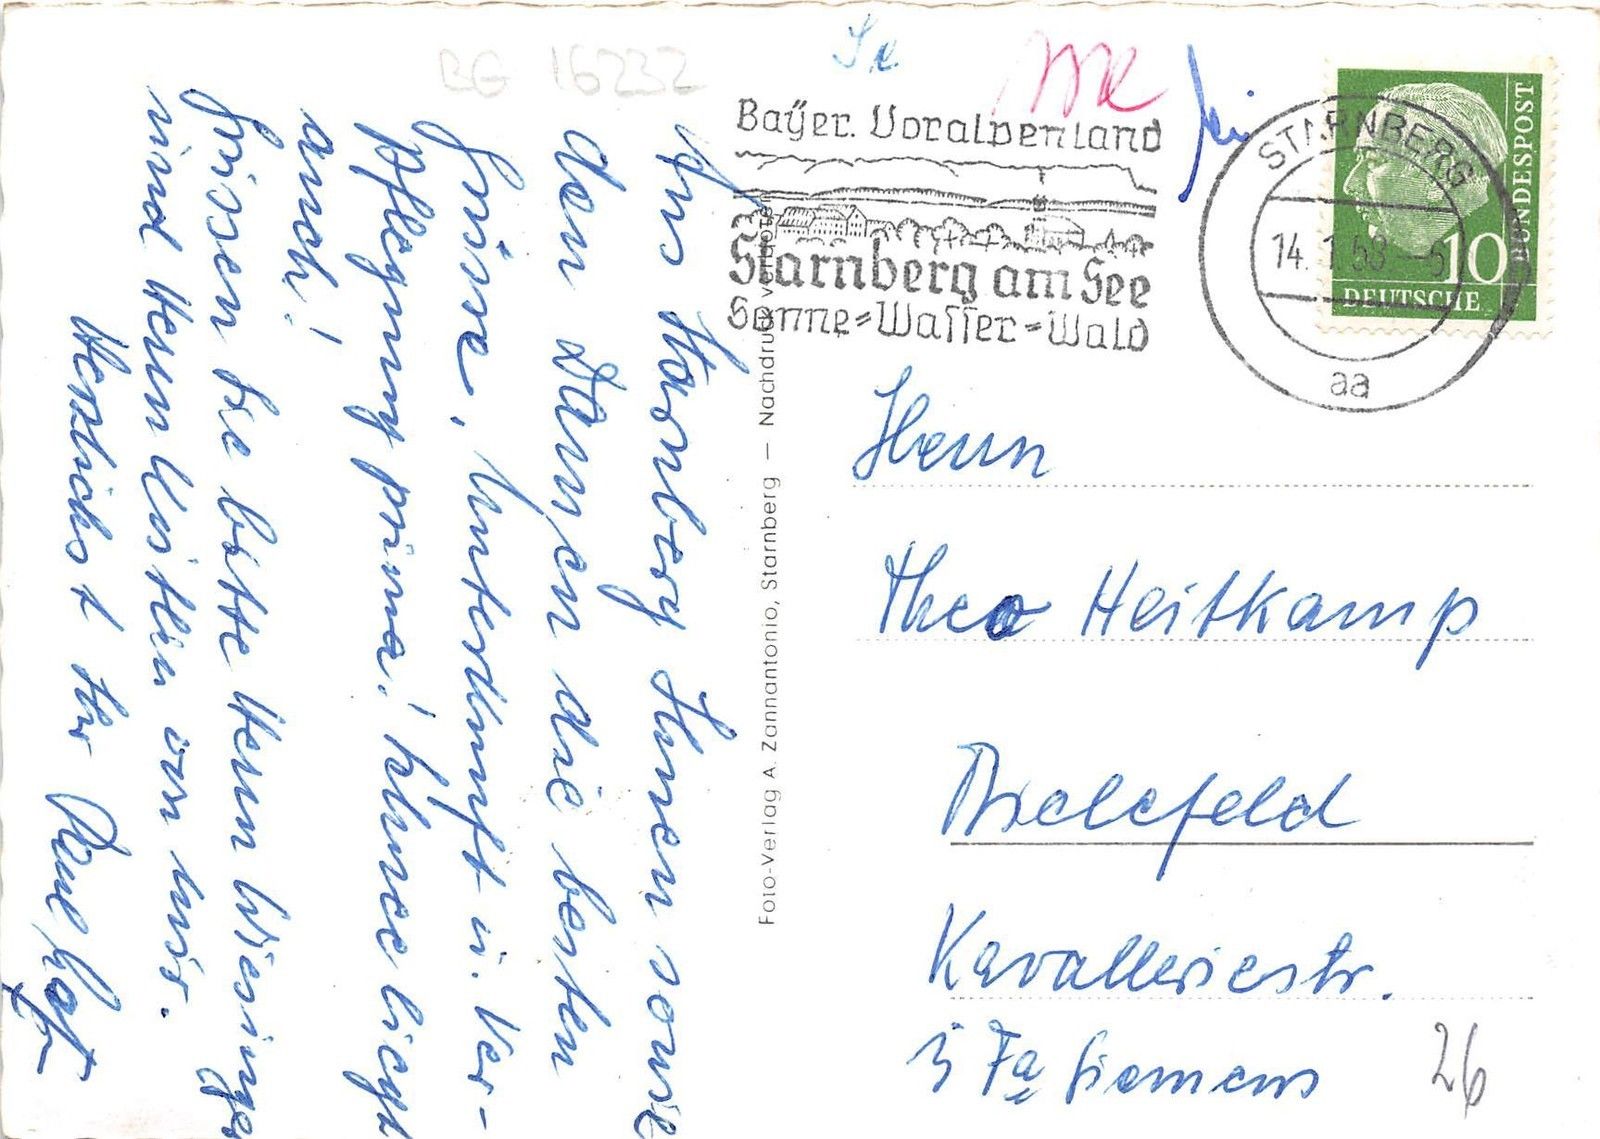 BG 16232
Se
Bayer. Voralpenland
Starnberg am See
Sonne=Wasser=Wald
STARNBERG
14.1.58-5
aa
10
DEUTSCHE
BUNDESPOST
Aus Starnberg Ihnen sowie
den Damen die besten
Grüsse, Unterkunft u. Ver-
pflegung prima! Schnee liegt
auch!
Grüssen Sie bitte Herrn Wiesinger
und Herrn von mir.
Herzlichst Ihr Paul
Foto-Verlag A. Zannantonio, Starnberg — Nachdruck verboten
Herrn
Theo Heitkamp
Bielefeld
Kavalleriestr.
Fa Siemens
26